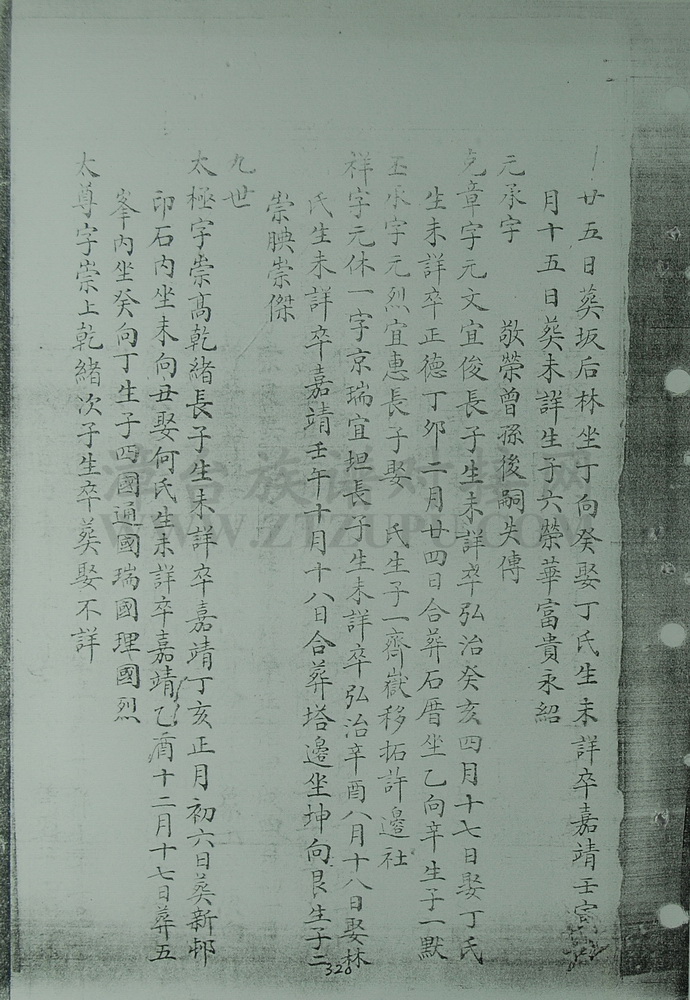 廿五日葬坂后林坐丁向癸娶丁氏生未詳卒嘉靖壬
月十五日葬未詳生子六榮華富貴永紹
元承字 敬榮曾孫後嗣失傳
克章字元文宜俊長子生未詳卒弘治癸亥四月十七日娶丁氏
生未詳卒正德丁卯二月廿四日合葬石厝坐乙向辛生子一默
丕承字元烈宜惠長子娶 氏生子一齊嶽移拓許邊社
祥字元休一字京瑞宜坦長子生未詳卒弘治辛酉八月十八日娶林
氏生未詳卒嘉靖壬午十月十八日合葬塔邊坐坤向艮生子二
崇腆崇傑
九世
太極字崇高乾緒長子生未詳卒嘉靖丁亥正月初六日葬新邨
印石内坐未向丑娶何氏生未詳卒嘉靖乙酉十二月十七日葬五
峯内坐癸向丁生子四國通國瑞國理國烈
太尊字崇上乾緒次子生卒葬娶不詳
328
漳台族谱对接网
WWW.ZTZUPU.COM